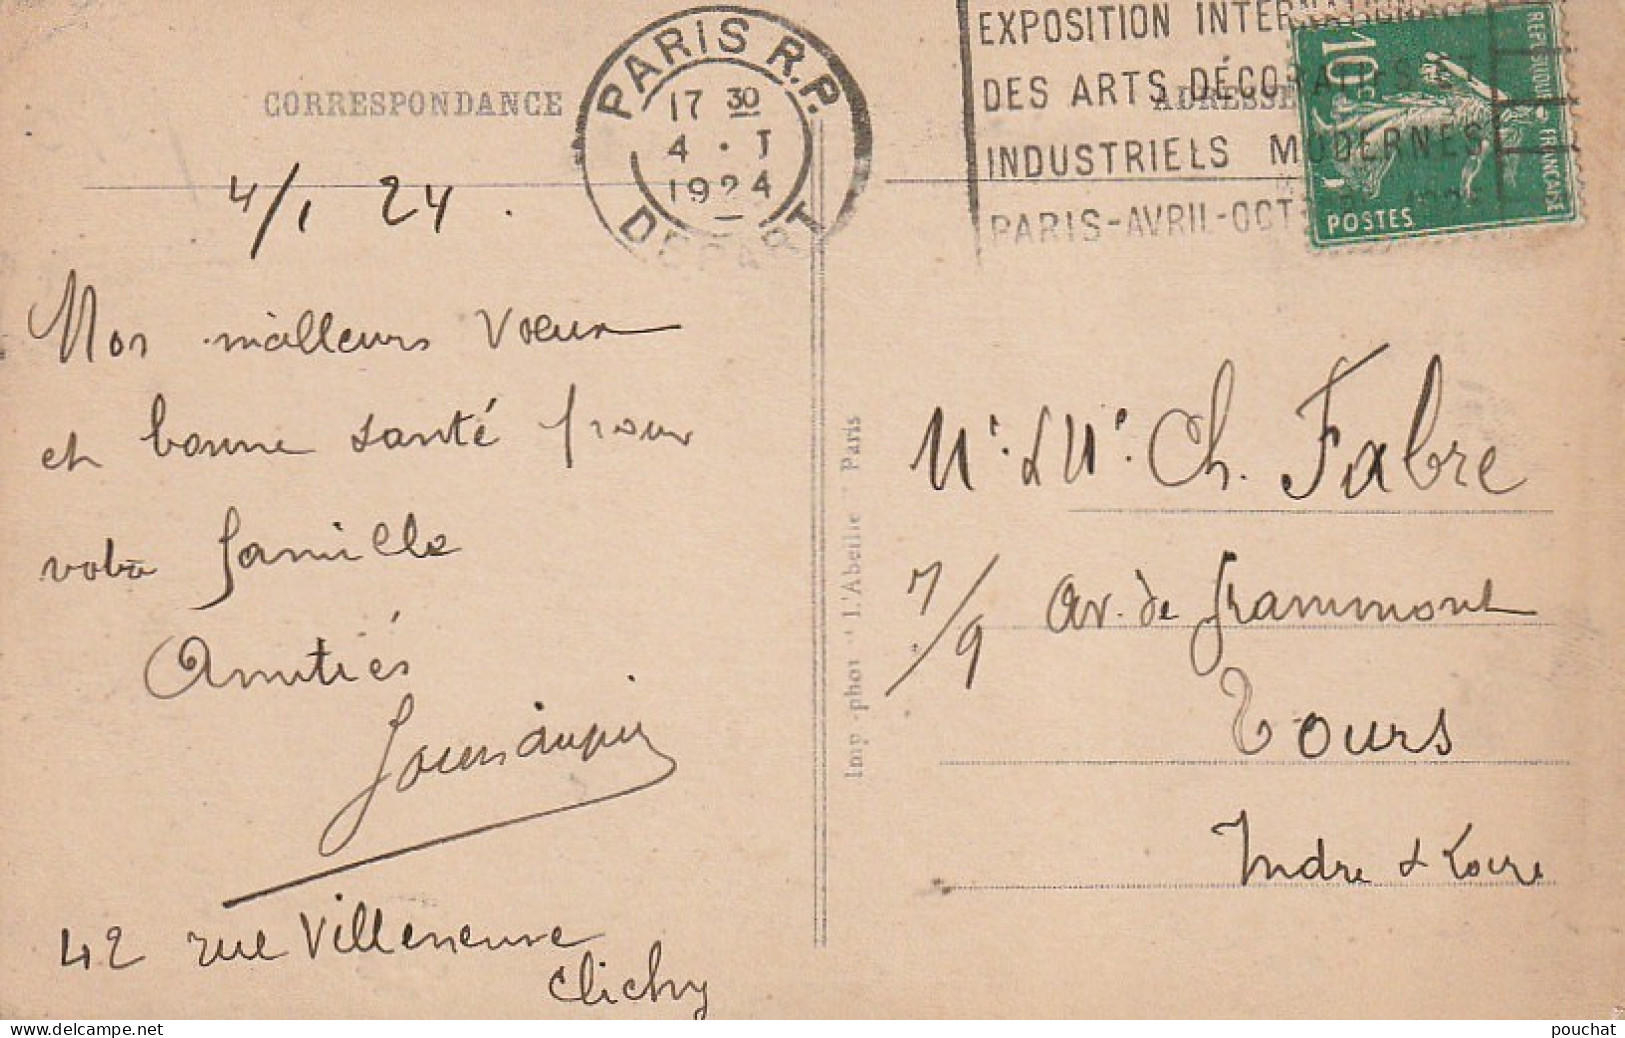 CORRESPONDANCE
PARIS R.P.
17 30
4 · I
1924
DEPART
EXPOSITION INTERNATIONALE
DES ARTS DÉCORATIFS ET
INDUSTRIELS MODERNES
PARIS-AVRIL-OCT
ADRESSE
10c
REPUBLIQUE FRANCAISE
POSTES
4/1 24.
Nos meilleurs Vœux
et bonne santé pour
votre famille
Amitiés
42 rue Villeneuve
Clichy
Imp-phot "L'Abeille" Paris
Mr. & Me. Ch. Fabre
7/9 av. de Grammont
Tours
Indre & Loire
pouchat
www.delcampe.net